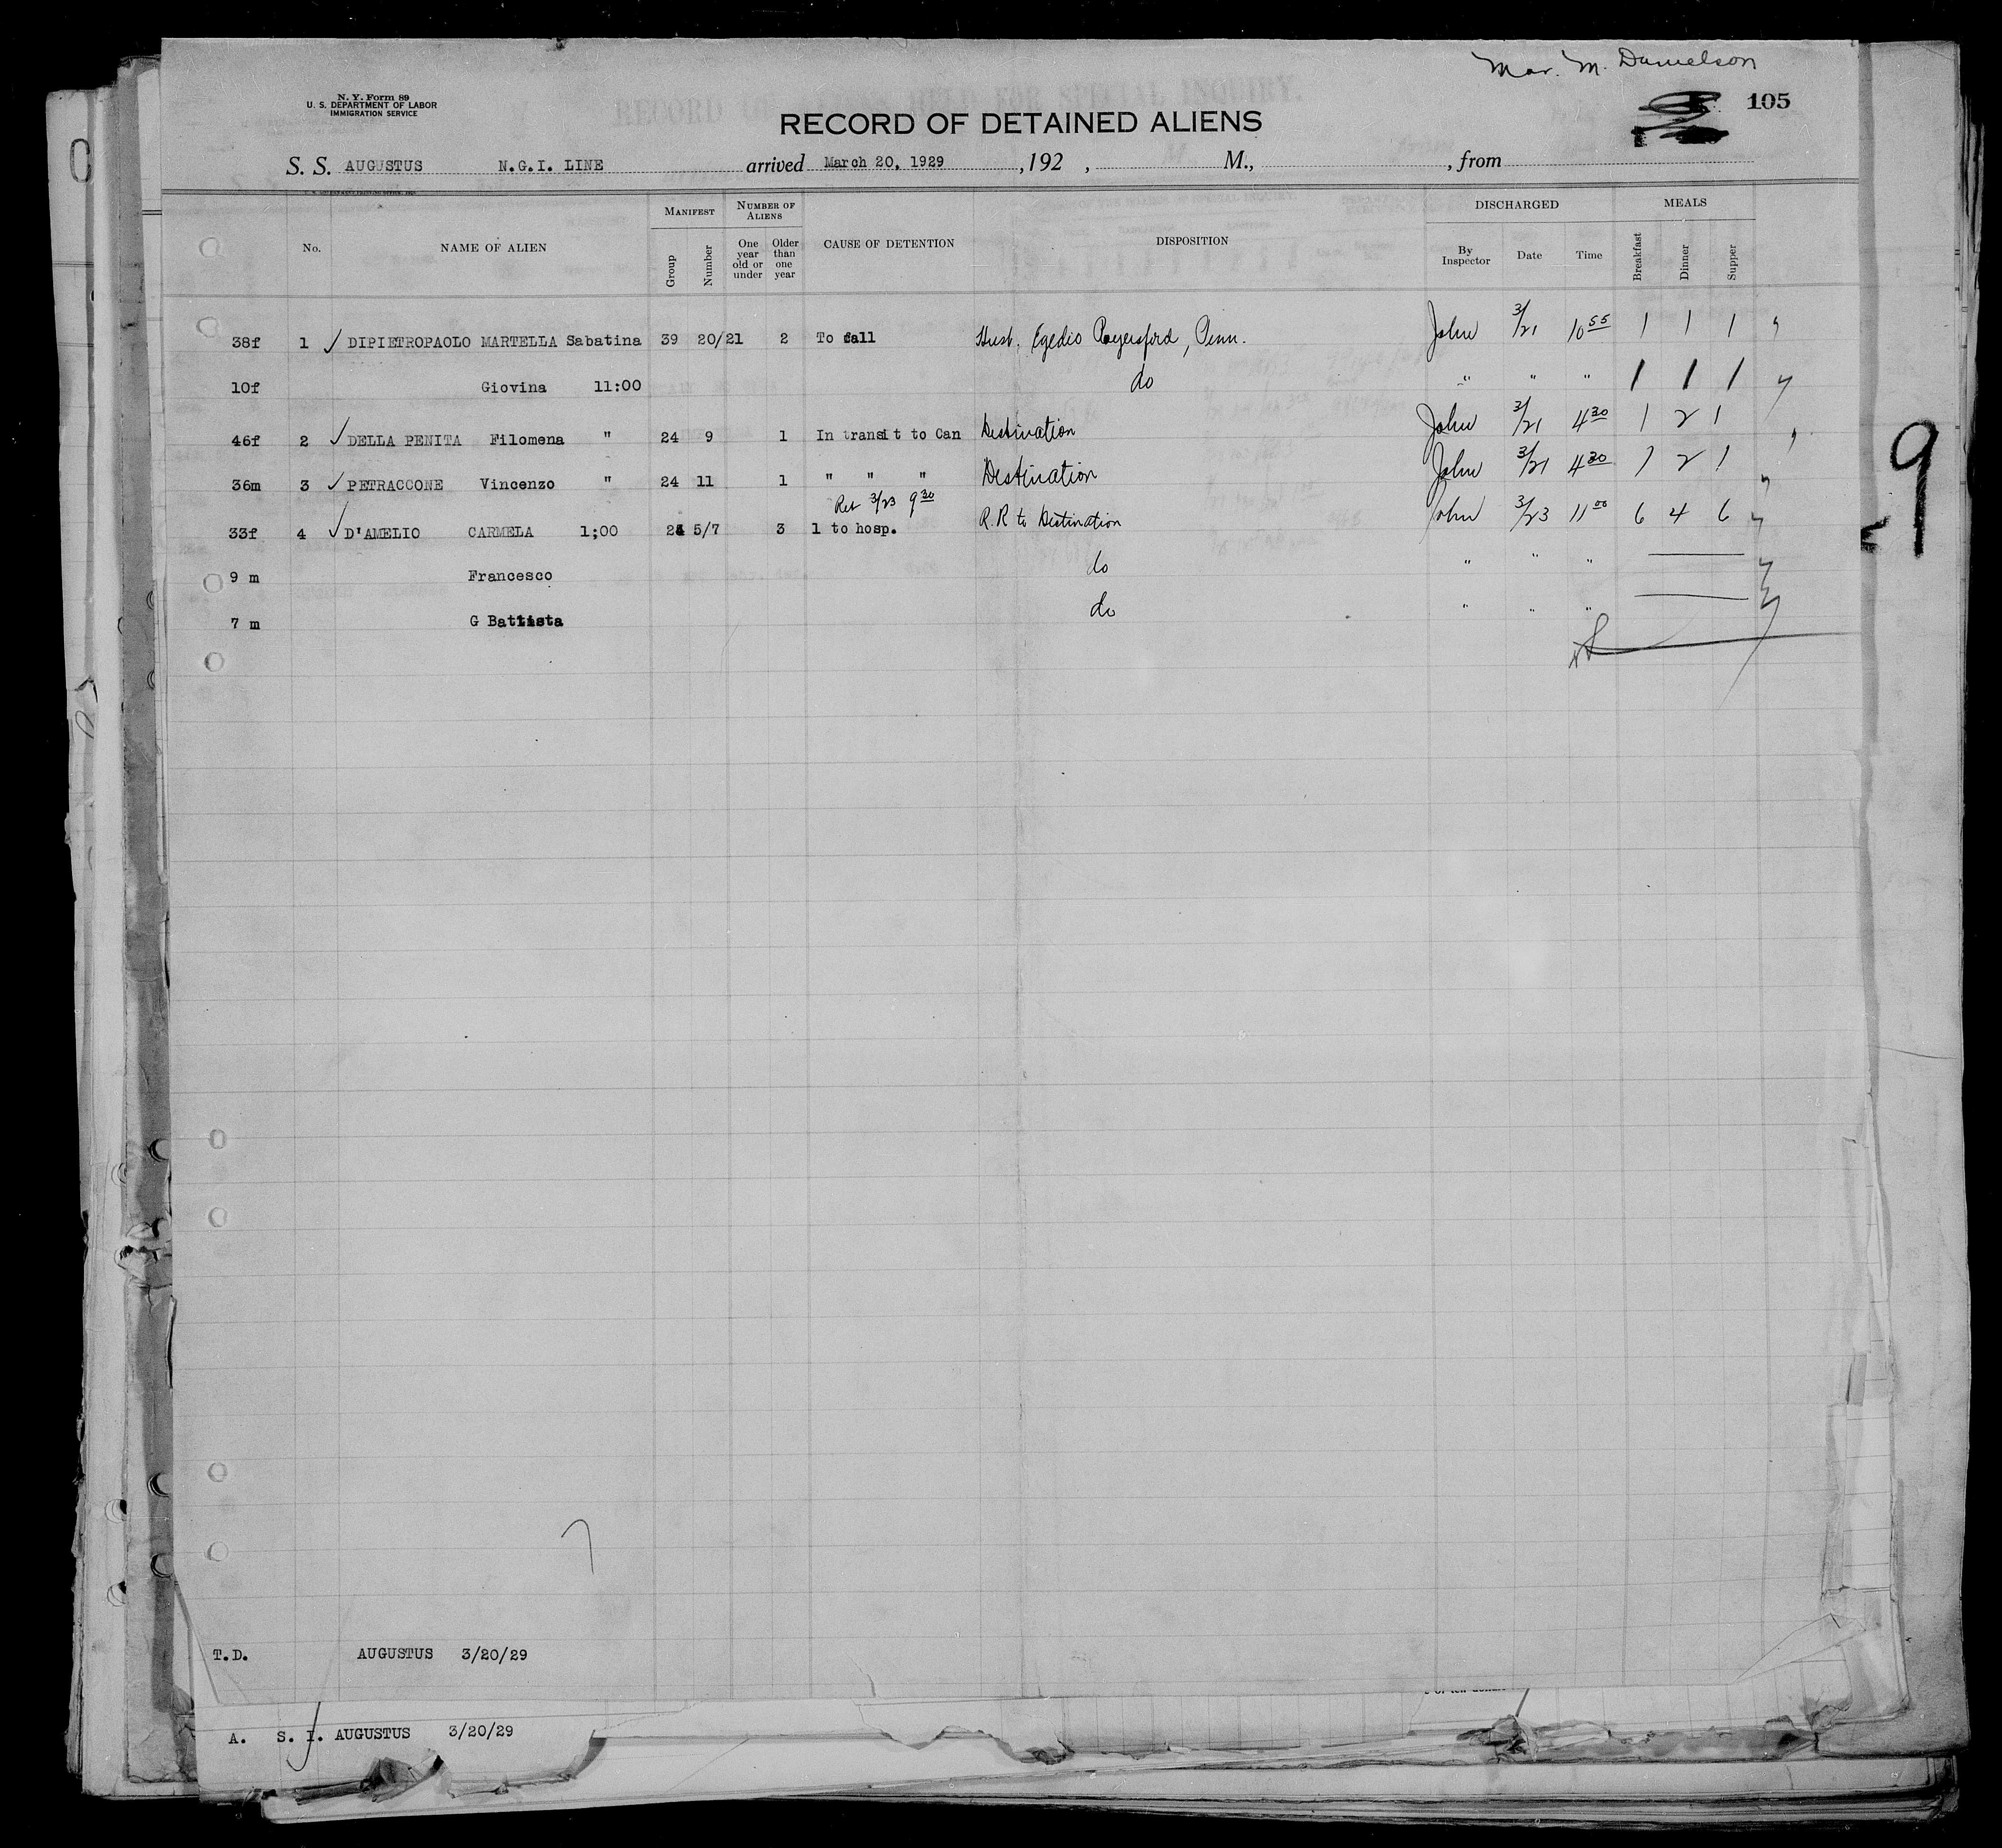 Mar. M. Danielson
N. Y. Form 89
U. S. DEPARTMENT OF LABOR
IMMIGRATION SERVICE
105
RECORD OF DETAINED ALIENS
S. S. AUGUSTUS N.G.I. LINE arrived March 20, 1929 , 192 , M., , from
No. NAME OF ALIEN MANIFEST Group Number NUMBER OF ALIENS One year old or under Older than one year CAUSE OF DETENTION DISPOSITION DISCHARGED By Inspector Date Time MEALS Breakfast Dinner Supper
38f 1 ✓ DIPIETROPAOLO MARTELLA Sabatina 39 20/21 2 To call Husb. Egedio Royersford, Penn. John 3/21 10 55 1 1 1
10f Giovina 11:00 do " " " 1 1 1
46f 2 ✓ DELLA PENITA Filomena " 24 9 1 In transit to Can Destination John 3/21 4 30 1 2 1
36m 3 ✓ PETRACCONE Vincenzo " 24 11 1 " " " Destination John 3/21 4 30 1 2 1
Ret 3/23 9 30
33f 4 ✓ D'AMELIO CARMELA 1;00 24 5/7 3 1 to hosp. R.R to Destination John 3/23 11 00 6 4 6
9 m Francesco do " " "
7 m G Battista do " " "
9
T.D. AUGUSTUS 3/20/29
A. S. I. AUGUSTUS 3/20/29